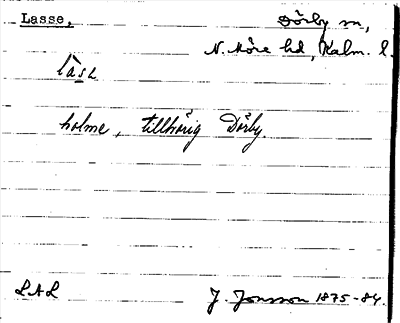 Lasse, Dörby sn,
N. Möre hd, Kalm. l.
làsɩ
holme, tillhörig Dörby.
LAL J. Jonsson 1875-84.